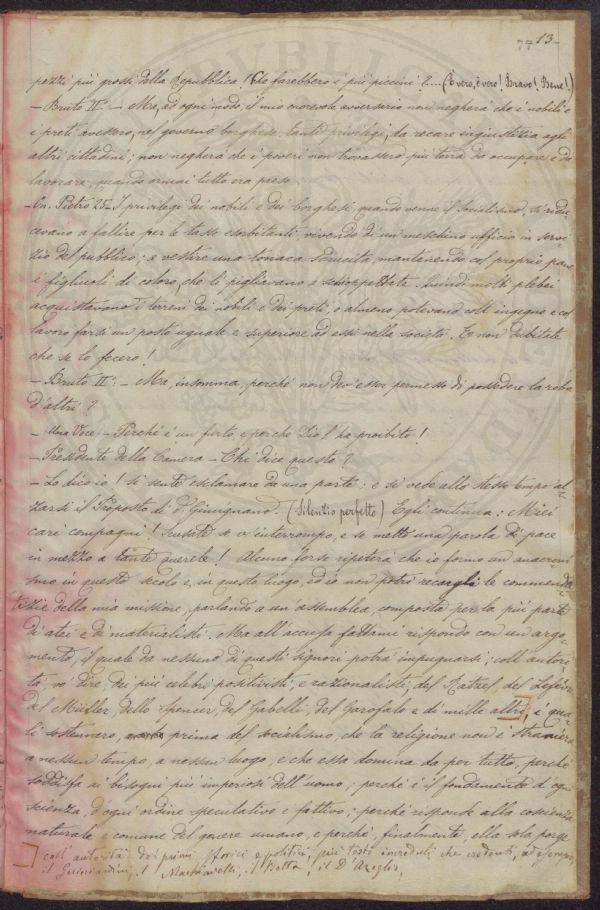 == 13 -
pezzi più grossi della Repubblica! Che farebbero i più piccini?.... (È vero, è vero! Bravo! Bene!)
- Bruto II.° - Ma, ad ogni modo, il mio onorevole avversario non negherà che i nobili e
i preti avessero, nel governo borghese, tanti privilegi, da recare ingiustizia agli
altri cittadini; non negherà che i poveri non trovassero più terra da occupare e da
lavorare, quando ormai tutto era preso.
- On. Pietro 25 - I privilegi dei nobili e dei borghesi, quando venne il socialismo, si ridu-
cevano a fallire per le tasse esorbitanti, vivendo di un meschino ufficio in servi-
zio del pubblico; a vestire una tonaca sdrucita, mantenendo col proprio pane
i figliuoli di coloro, che li pigliavano a schioppettate. Quindi molti plebei
acquistavano i terreni dei nobili e dei preti, o almeno potevano coll'ingegno e col
lavoro farsi un posto uguale e superiore ad essi nella società. E non dubitate
che se lo fecero!
- Bruto II.° - Ma, insomma, perché non dev'esser permesso di possedere la roba
d'altri?
- Una Voce - Perché è un furto, e perché Dio l'ha proibito!
- Presidente della Camera - Chi dice questo?
- Lo dico io! si sente esclamare da una parte: e si vede allo stesso tempo al-
zarsi il Proposto di S. Gimignano. (Silenzio perfetto) Egli continua: Miei
cari compagni! Scusate se v'interrompo, e se metto una parola di pace
in mezzo a tante querele! Alcuno forse ripeterà che io formo un anacroni
smo in questo secolo e, in questo luogo, ed io non potrò recargli le commenda
tizie della mia missione, parlando a un'assemblea, composta per la più parte
di atei e di materialisti. Ma all'accusa fattami rispondo con un argo-
mento, il quale da nessuno di questi signori potrà impugnarsi; coll'autori-
tà, vo' dire, dei più celebri positivisti, e razionalisti, del Ratzel, del Lefèvre
del Müeller, dello Spencer, del Gabelli, del Garofalo e di mille altri, i qua-
li sostennero, prima del socialismo, che la religione non è straniera
a nessun tempo, a nessun luogo, e che essa domina da per tutto, perché
soddisfa ai bisogni più imperiosi dell'uomo; perché è il fondamento d'ogni
scienza, d'ogni ordine speculativo e fattivo; perché risponde alla coscienza
naturale e comune del genere umano, e perché, finalmente, ella sola porge
coll'autorità dei primi storici e politici, più tosto increduli che credenti, ad esempio
il Guicciardini, il Machiavelli, il Botta, il D'Azeglio,